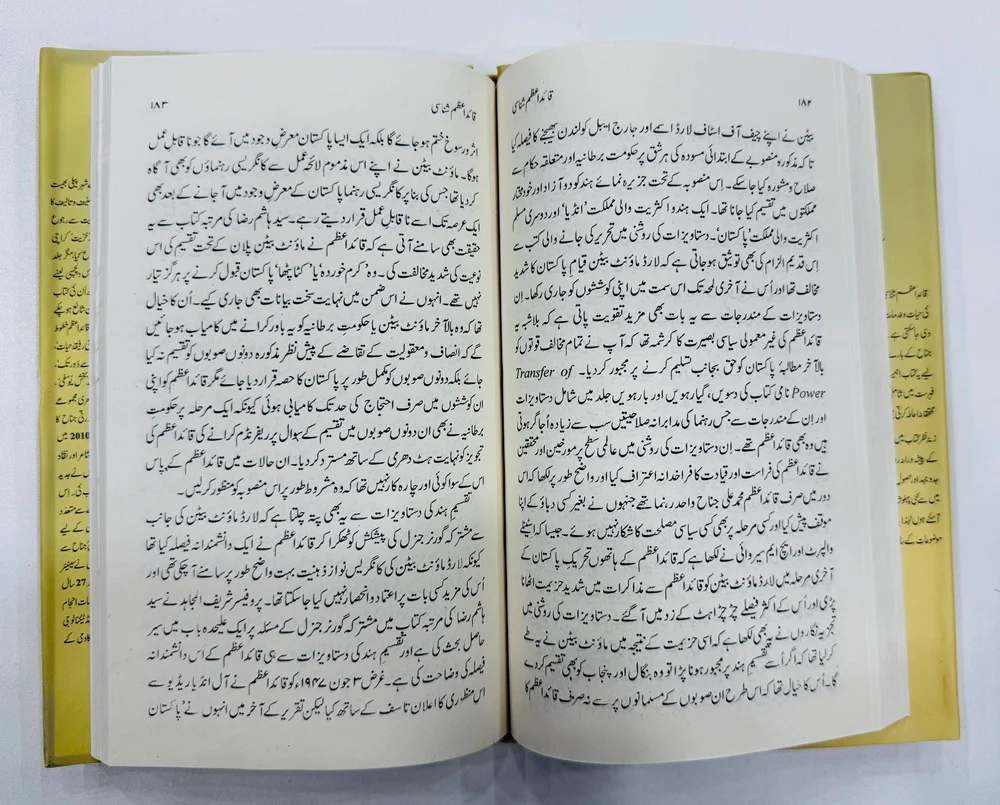 قائداعظم شناسی ۱۸۲
بیٹن نے اپنے چیف آف اسٹاف لارڈ اسمے اور جارج ایبل کو لندن بھیجنے کا فیصلہ کیا
تاکہ مذکورہ منصوبے کے ابتدائی مسودہ کی ہر شق پر حکومت برطانیہ اور متعلقہ حکام سے
صلاح و مشورہ کیا جاسکے۔ اِس منصوبہ کے تحت جزیرہ نمائے ہند کو دو آزاد اور خود مختار
مملکتوں میں تقسیم کیا جانا تھا۔ ایک ہندو اکثریت والی مملکت ’انڈیا‘ اور دوسری مسلم
اکثریت والی مملکت ’پاکستان‘۔ دستاویزات کی روشنی میں تحریر کی جانے والی کتب سے
اِس قدیم الزام کی بھی توثیق ہوجاتی ہے کہ لارڈ ماؤنٹ بیٹن قیامِ پاکستان کا شدید
مخالف تھا اور اُس نے آخری لمحہ تک اس سمت میں اپنی کوششوں کو جاری رکھا۔ اِن
دستاویزات کے مندرجات سے یہ بات بھی مزید تقویت پاتی ہے کہ بلاشبہ یہ
قائداعظم کی غیر معمولی سیاسی بصیرت کا کرشمہ تھا کہ آپ نے تمام مخالف قوتوں کو
بالآخر مطالبۂ پاکستان کو حق بجانب تسلیم کرنے پر مجبور کردیا۔ Transfer of
Power نامی کتاب کی دسویں، گیارہویں اور بارہویں جلد میں شامل دستاویزات
اور اِن کے مندرجات سے جس رہنما کی مدبرانہ صلاحیتیں سب سے زیادہ اُجاگر ہوتی
ہیں وہ بھی قائداعظم تھے۔ اِن دستاویزات کی روشنی میں عالمی سطح پر مورخین اور محققین
نے قائداعظم کی فراست اور قیادت کا فراخدلانہ اعتراف کیا اور واضح طور پر لکھا کہ اس
دور میں صرف قائداعظم محمد علی جناح واحد رہنما تھے جنہوں نے بغیر کسی دباؤ کے اپنا
موقف پیش کیا اور کسی مرحلہ پر بھی کسی سیاسی مصلحت کا شکار نہیں ہوئے۔ جیسا کہ اسٹینلے
والپرٹ اور ایچ ایم سیروائی نے لکھا ہے کہ قائداعظم کے ہاتھوں تحریکِ پاکستان کے
آخری مرحلہ میں لارڈ ماؤنٹ بیٹن کو قائداعظم سے مذاکرات میں شدید حزیمت اٹھانا
پڑی اور اُس کے اکثر فیصلے چڑچڑاہٹ کے زد میں آگئے۔ دستاویزات کی روشنی میں
تجزیہ نگاروں نے یہ بھی لکھا ہے کہ اسی حزیمت کے نتیجہ میں ماؤنٹ بیٹن نے یہ طے
کرلیا تھا کہ اگر اُسے تقسیمِ ہند پر مجبور ہونا پڑا تو وہ بنگال اور پنجاب کو بھی تقسیم کردے
گا۔ اُس کا خیال تھا کہ اس طرح ان صوبوں کے مسلمانوں پر سے نہ صرف قائداعظم کا
قائداعظم شناسی ۱۸۳
اثر و رسوخ ختم ہوجائے گا بلکہ ایک ایسا پاکستان معرضِ وجود میں آئے گا جو ناقابلِ عمل
ہوگا۔ ماؤنٹ بیٹن نے اپنے اس مذموم لائحہ عمل سے کانگریسی رہنماؤں کو بھی آگاہ
کردیا تھا جس کی بنا پر کانگریسی رہنما پاکستان کے معرضِ وجود میں آجانے کے بعد بھی
ایک عرصہ تک اسے ناقابلِ عمل قرار دیتے رہے۔ سید ہاشم رضا کی مرتبہ کتاب سے یہ
حقیقت بھی سامنے آتی ہے کہ قائداعظم نے ماؤنٹ بیٹن پلان کے تحت تقسیم کی اس
نوعیت کی شدید مخالفت کی۔ وہ ’کرم خوردہ یا‘ ’کٹا پھٹا‘ پاکستان قبول کرنے پر ہرگز تیار
نہیں تھے۔ انہوں نے اس ضمن میں نہایت سخت بیانات بھی جاری کیے۔ اُن کا خیال
تھا کہ وہ بالآخر ماؤنٹ بیٹن یا حکومتِ برطانیہ کو یہ باور کرانے میں کامیاب ہوجائیں
گے کہ انصاف و معقولیت کے تقاضے کے پیشِ نظر مذکورہ دونوں صوبوں کو تقسیم نہ کیا
جائے بلکہ دونوں صوبوں کو مکمل طور پر پاکستان کا حصہ قرار دیا جائے مگر قائداعظم کو اپنی
ان کوششوں میں صرف احتجاج کی حد تک کامیابی ہوئی کیونکہ ایک مرحلہ پر حکومتِ
برطانیہ نے بھی ان دونوں صوبوں میں تقسیم کے سوال پر ریفرنڈم کرانے کی قائداعظم کی
تجویز کو نہایت ہٹ دھرمی کے ساتھ مسترد کردیا۔ ان حالات میں قائداعظم کے پاس
اس کے سوا کوئی اور چارہ کار نہیں تھا کہ وہ مشروط طور پر اس منصوبہ کو منظور کرلیں۔
تقسیمِ ہند کی دستاویزات سے یہ بھی پتہ چلتا ہے کہ لارڈ ماؤنٹ بیٹن کی جانب
سے مشترکہ گورنر جنرل کی پیشکش کو ٹھکرا کر قائداعظم نے ایک دانشمندانہ فیصلہ کیا تھا
کیونکہ لارڈ ماؤنٹ بیٹن کی کانگریس نواز ذہنیت بہت واضح طور پر سامنے آچکی تھی اور
اُس کی مزید کسی بات پر اعتماد و انحصار نہیں کیا جاسکتا تھا۔ پروفیسر شریف المجاہد نے سید
ہاشم رضا کی مرتبہ کتاب میں مشترکہ گورنر جنرل کے مسئلہ پر ایک علیحدہ باب میں سیر
حاصل بحث کی ہے اور تقسیمِ ہند کی دستاویزات سے ہی قائداعظم کے اس دانشمندانہ
فیصلہ کی وضاحت کی ہے۔ غرض ۳ جون ۱۹۴۷ء کو قائداعظم نے آل انڈیا ریڈیو سے
اس منظوری کا اعلان تاسف کے ساتھ کیا لیکن تقریر کے آخر میں انہوں نے ’پاکستان